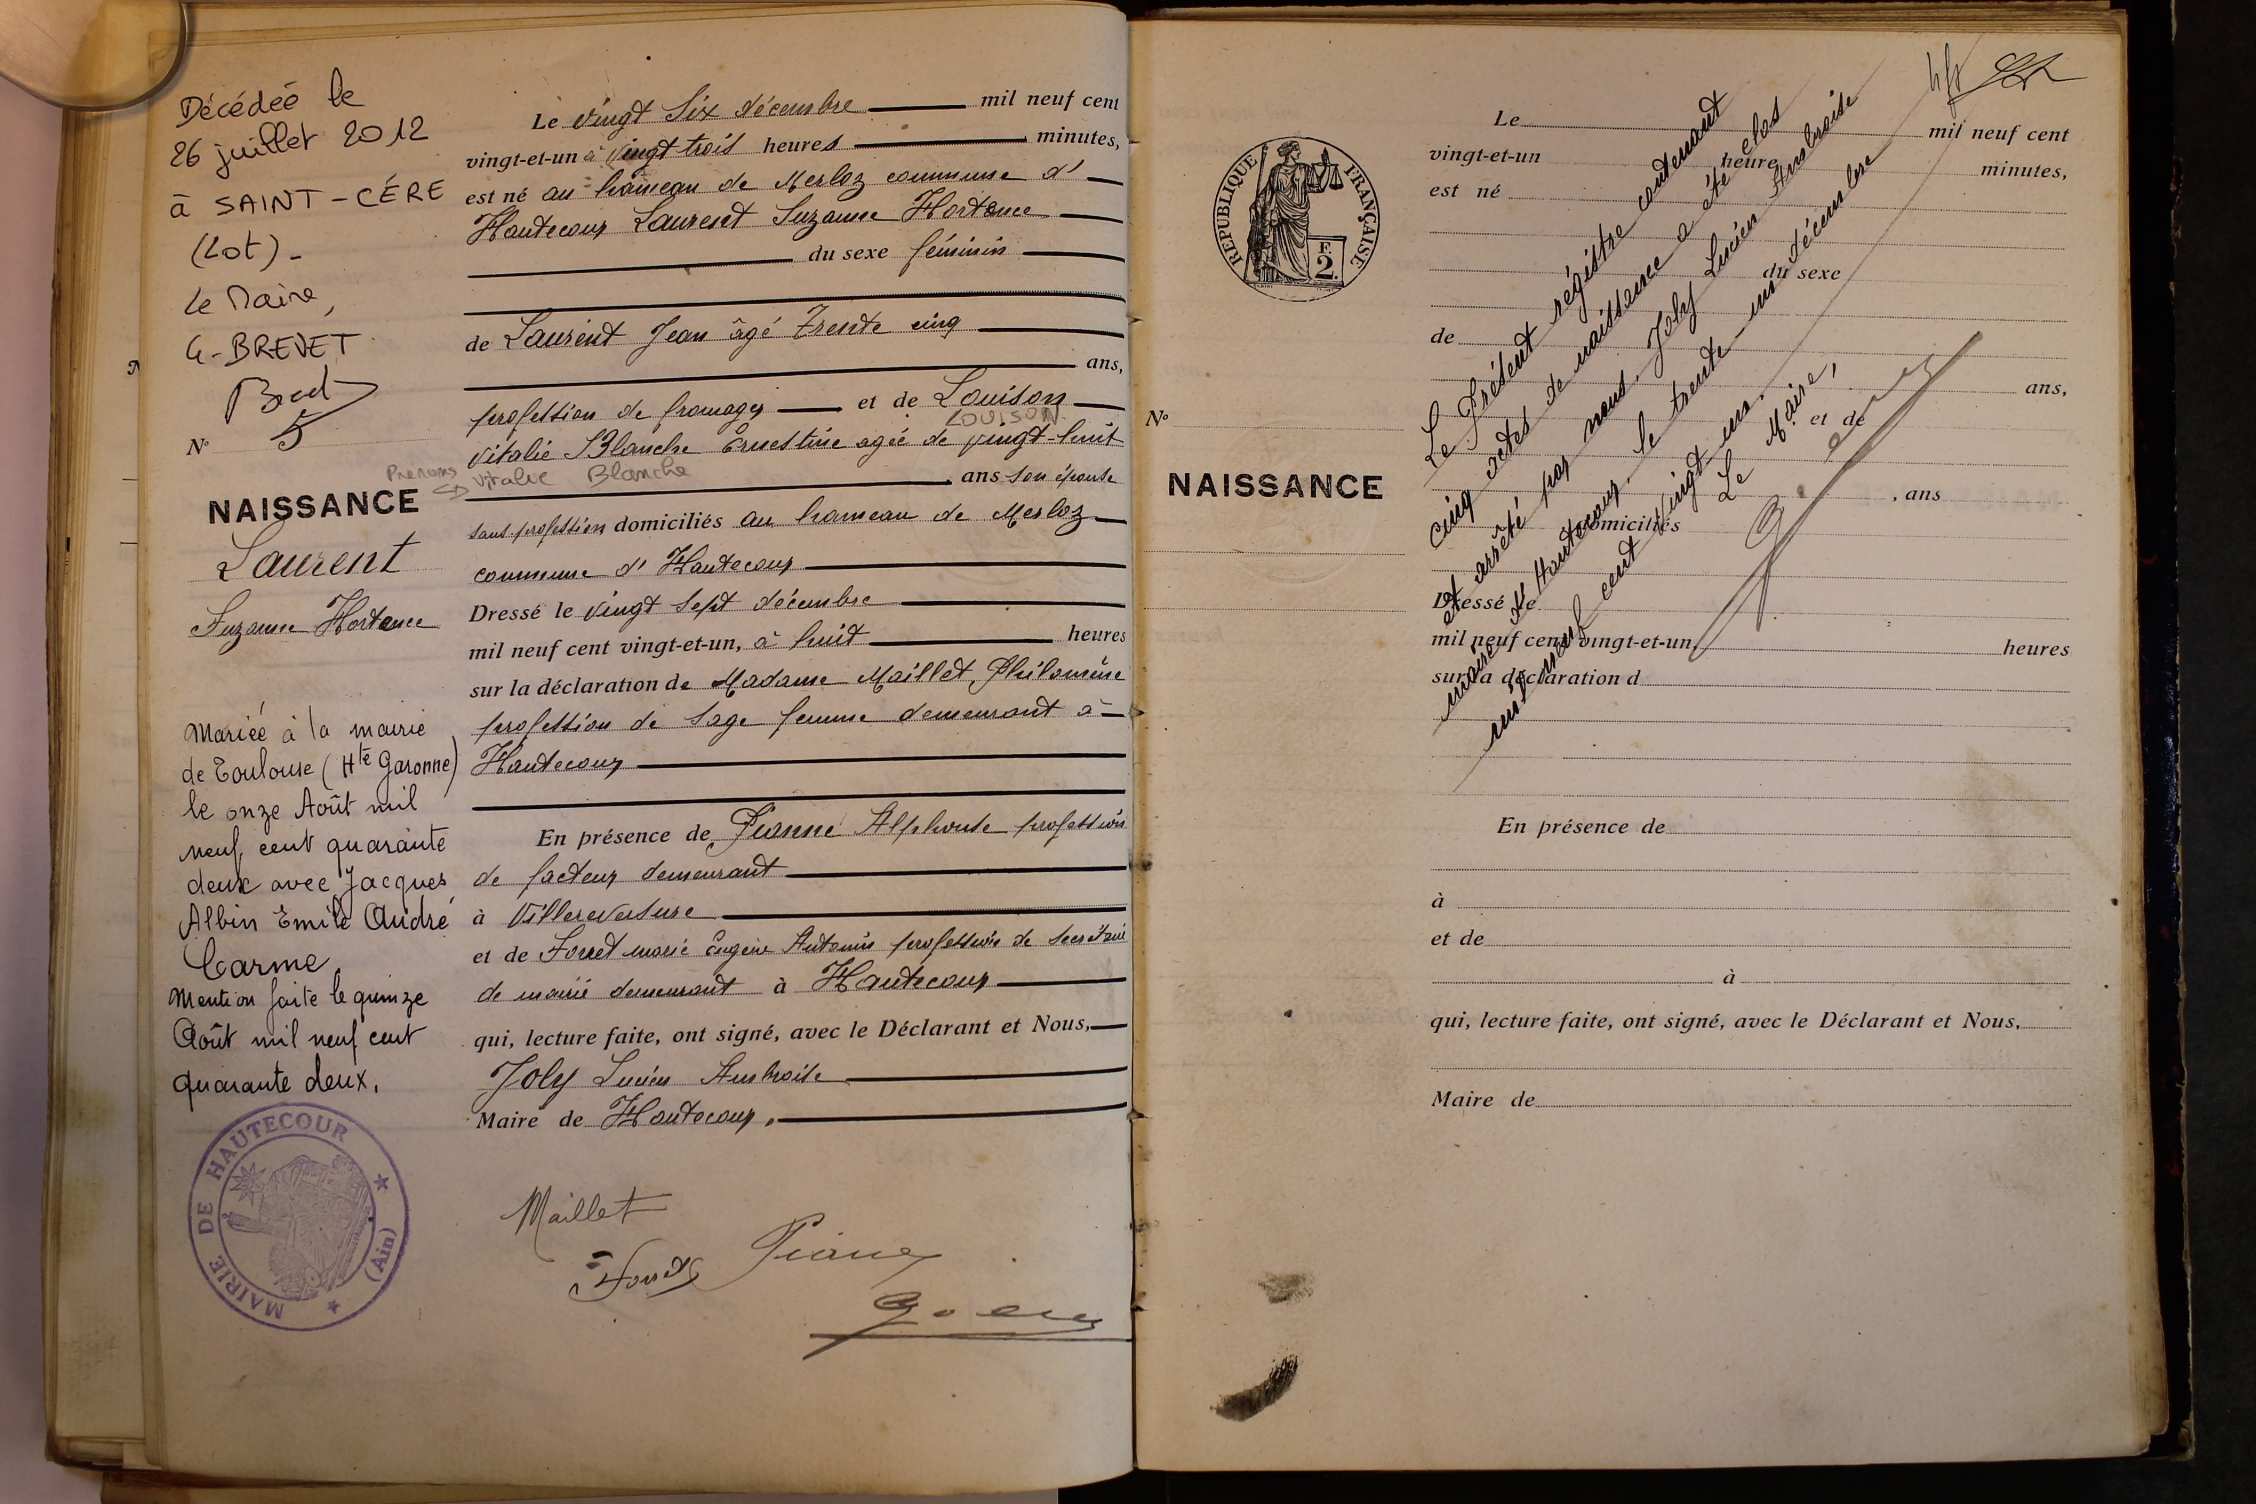 Décédée le
26 juillet 2012
à SAINT-CÉRE
(Lot)-
Le Maire,
G-BREVET
N° 5
NAISSANCE
Laurent
Suzanne Hortence
Mariée à la mairie
de Toulouse (Hte Garonne)
le onze Août mil
neuf cent quarante
deux avec Jacques
Albin Emile André
Carme
Mention faite le quinze
Août mil neuf cent
quarante deux.
MAIRIE DE HAUTECOUR (Ain)
Le vingt six décembre mil neuf cent
vingt-et-un à vingt trois heures minutes,
est né au hameau de Merloz commune d'
Hautecour Laurent Suzanne Hortence
du sexe féminin
de Laurent Jean âgé Trente cinq
ans,
profession de fromager et de Louison
LOUISON
vitalie Blanche Ernestine agée de vingt-huit
Prenoms Vitalie Blanche
ans son épouse
sans profession domiciliés au hameau de Merloz
commune d'Hautecour
Dressé le vingt sept décembre
mil neuf cent vingt-et-un, à huit heures
sur la déclaration de Madame Maillet, Philomène
profession de sage femme demeurant à
Hautecour
En présence de Pianne Alphonse profession
de facteur demeurant
à Villereversure
et de Forret marie Eugène Antonin profession de secrétaire
de mairie demeurant à Hautecour
qui, lecture faite, ont signé, avec le Déclarant et Nous,
Joly Lucien Ambroise
Maire de Hautecour.
Maillet
REPUBLIQUE FRANÇAISE
F.
2.
N°
NAISSANCE
Le mil neuf cent
vingt-et-un heure minutes,
est né
du sexe
de
ans,
et de
, ans
domiciliés
Dressé le
mil neuf cent vingt-et-un heures
sur la déclaration d
En présence de
à
et de
à
qui, lecture faite, ont signé, avec le Déclarant et Nous,
Maire de
Le Présent régistre contenant
cinq actes de naissance a été clos
et arrêté par nous, Joly Lucien Ambroise
maire d'Hautecour, le trente-un décembre
mil neuf cent vingt-un.
Le Maire,